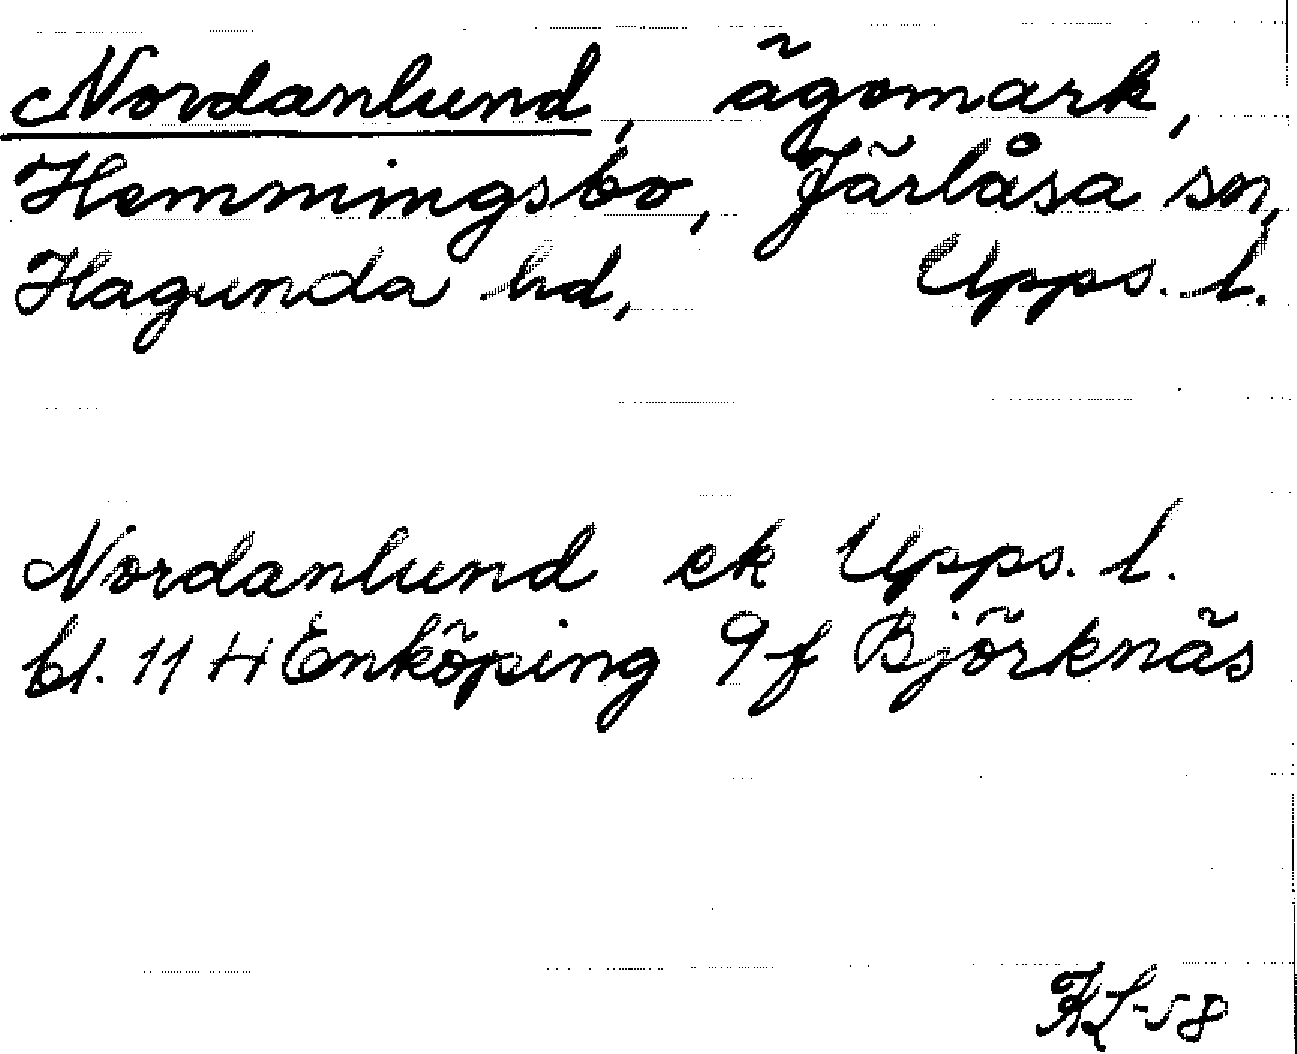 Nordanlund, ägomark,
Hemmingsbo, Järlåsa sn,
Hagunda hd, Upps. l.
Nordanlund ek Upps. l.
bl. 11 H Enköping 9f Björknäs
KL-58